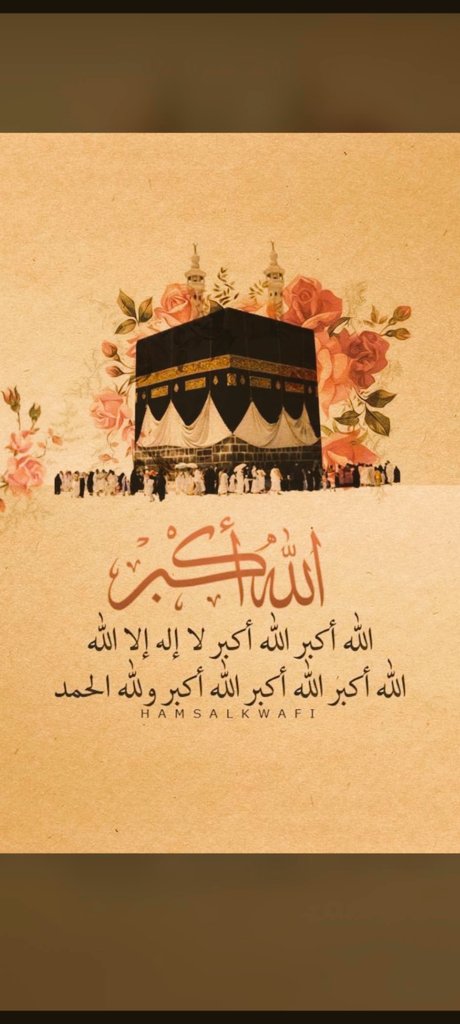 اللهُ أكبر
الله أكبر الله أكبر لا إله إلا الله
الله أكبر الله أكبر الله أكبر ولله الحمد
HAMSALKWAFI